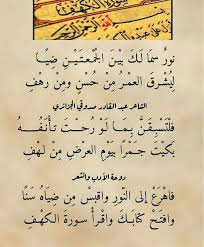 سورة الكهف
نورٌ سَمَا لَكَ بَيْنَ الجُمْعَتَيْنِ ضِيَا
لِيُشْرِقَ العُمْرُ مِنْ حُسْنٍ وَمِنْ رَهَفِ
الشاعر عبد القادر صدوقي الجزائري
فَلْتَسْبِقَنَّ بِمَا لَوْ رُحْتَ تَأْنَفُهُ
بَكَيْتَ جَمْرًا بِيَوْمِ العَرْضِ مِنْ لَهَفِ
روحة الأدب والشعر
فَاهْرَعْ إلى النّورِ واقْبِسْ مِن ضِيَاهُ سَنًا
وافْتَحْ كِتَابَكَ وَاقْرَأْ سورةَ الكَهْفِ